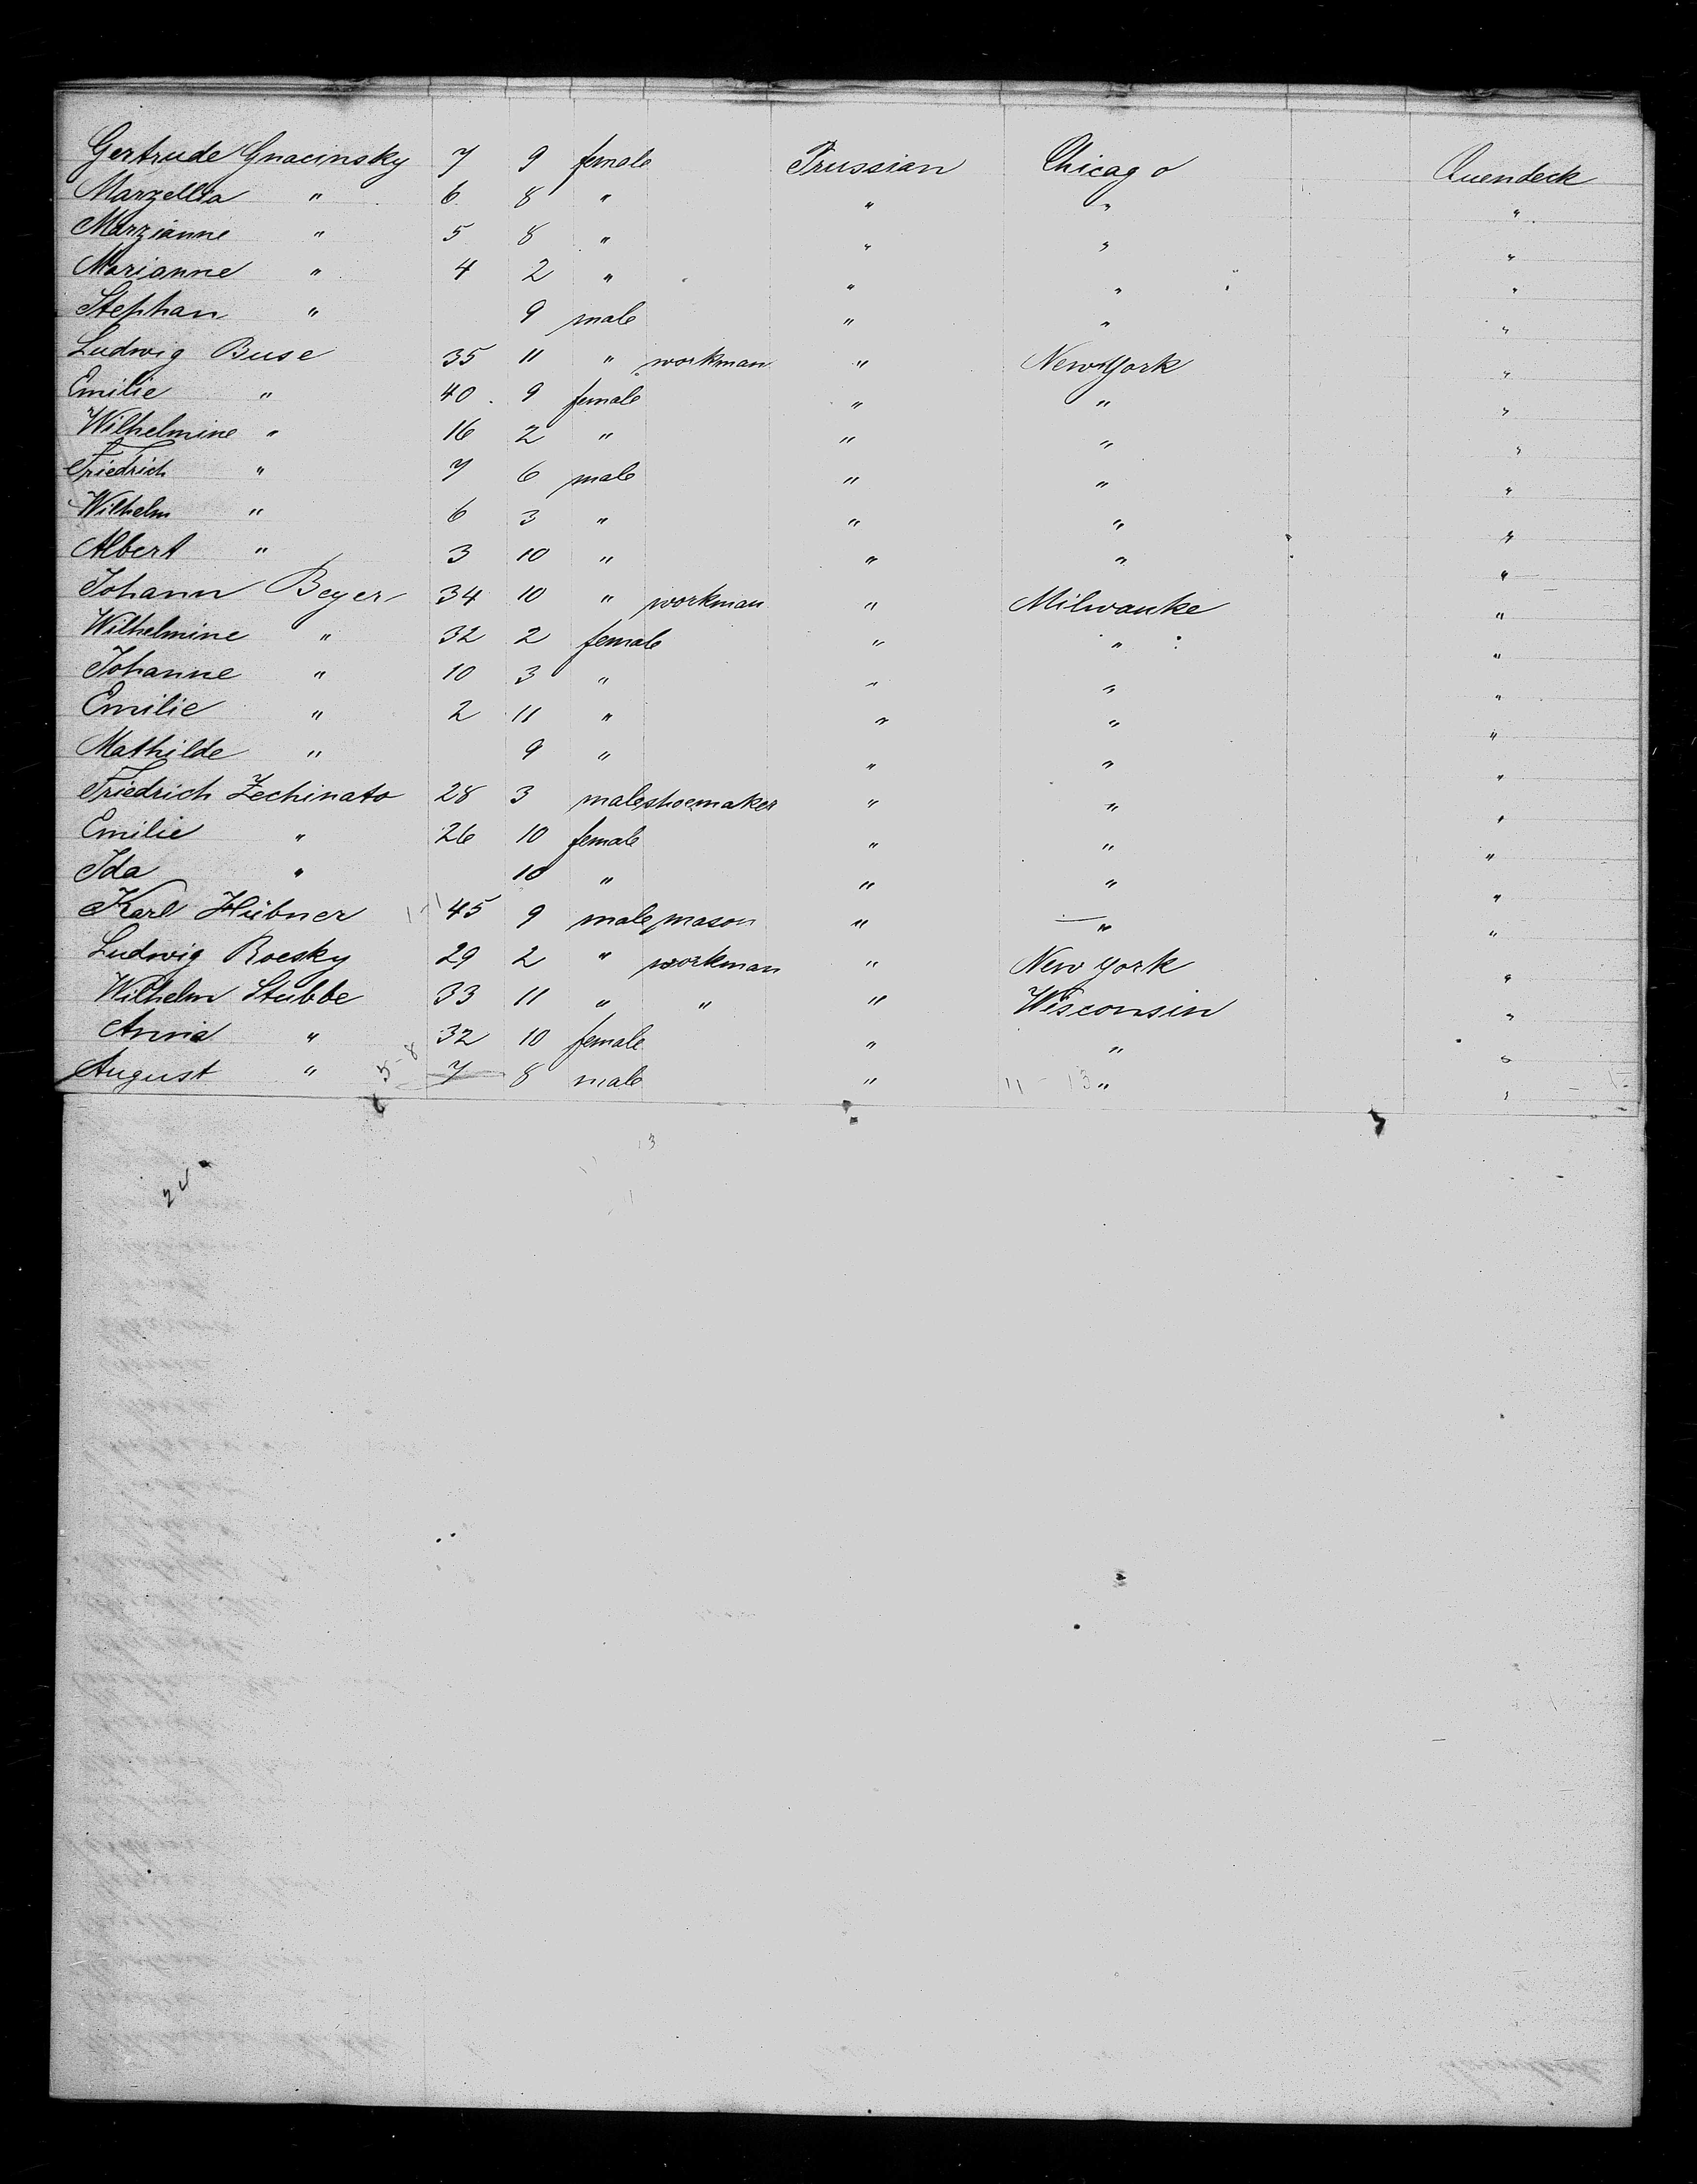 Gertrude Gnacinsky 7 9 female Prussian Chicago Quendeck
Marzellia " 6 8 " " " "
Marzianne " 5 8 " " " "
Marianne " 4 2 " " " "
Stephan " 9 male " " "
Ludwig Buse 35 11 " workman " New York "
Emilie " 40 9 female " " "
Wilhelmine " 16 2 " " " "
Friedrich " 7 6 male " " "
Wilhelm " 6 3 " " " "
Albert " 3 10 " " " "
Johann Beyer 34 10 " workman " Milwauke "
Wilhelmine " 32 2 female " " "
Johanne " 10 3 " " " "
Emilie " 2 11 " " " "
Mathilde " 9 " " " "
Friedrich Zechinato 28 3 male shoemaker " " "
Emilie " 26 10 female " " "
Ida " 10 " " " "
Karl Hübner 45 9 male mason " " "
Ludwig Roesky 29 2 " workman " New York "
Wilhelm Stubbe 33 11 " " " Wisconsin "
Anna " 32 10 female " " "
August " 5-8 7 8 male " 11-13 " "